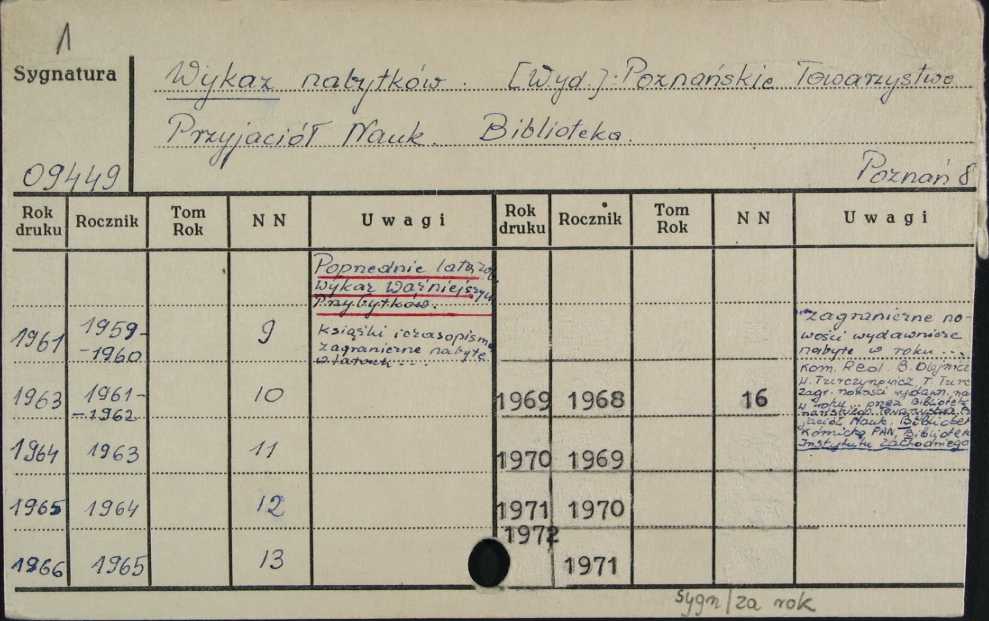 1
Sygnatura
Wykaz nabytków. [Wyd.]: Poznańskie Towarzystwo
Przyjaciół Nauk. Biblioteka.
09449
Poznań 8
Rok druku Rocznik Tom Rok NN Uwagi Rok druku Rocznik Tom Rok NN Uwagi
Poprzednie lata zob.
Wykaz Ważniejszych
Przybytków.
1961 1959-
-1960 9 książki i czasopisma
zagraniczne nabyte
w latach ...
zagraniczne no-
wości wydawnicze
nabyte w roku ...
1963 1961-
-1962 10 1969 1968 16
Kom. Red. B. Olejnicz
H. Turczynowicz, T. Turc
zagr. nowości wydawn. na
w roku ... przez Bibliotek
Towarzystwa
jaciół Nauk, Bibliotek
Kórnicką PAN, Bibliotek
Instytutu Zachodniego
1964 1963 11 1970 1969
1965 1964 12 1971 1970
1972
1966 1965 13 1971
sygn/za rok